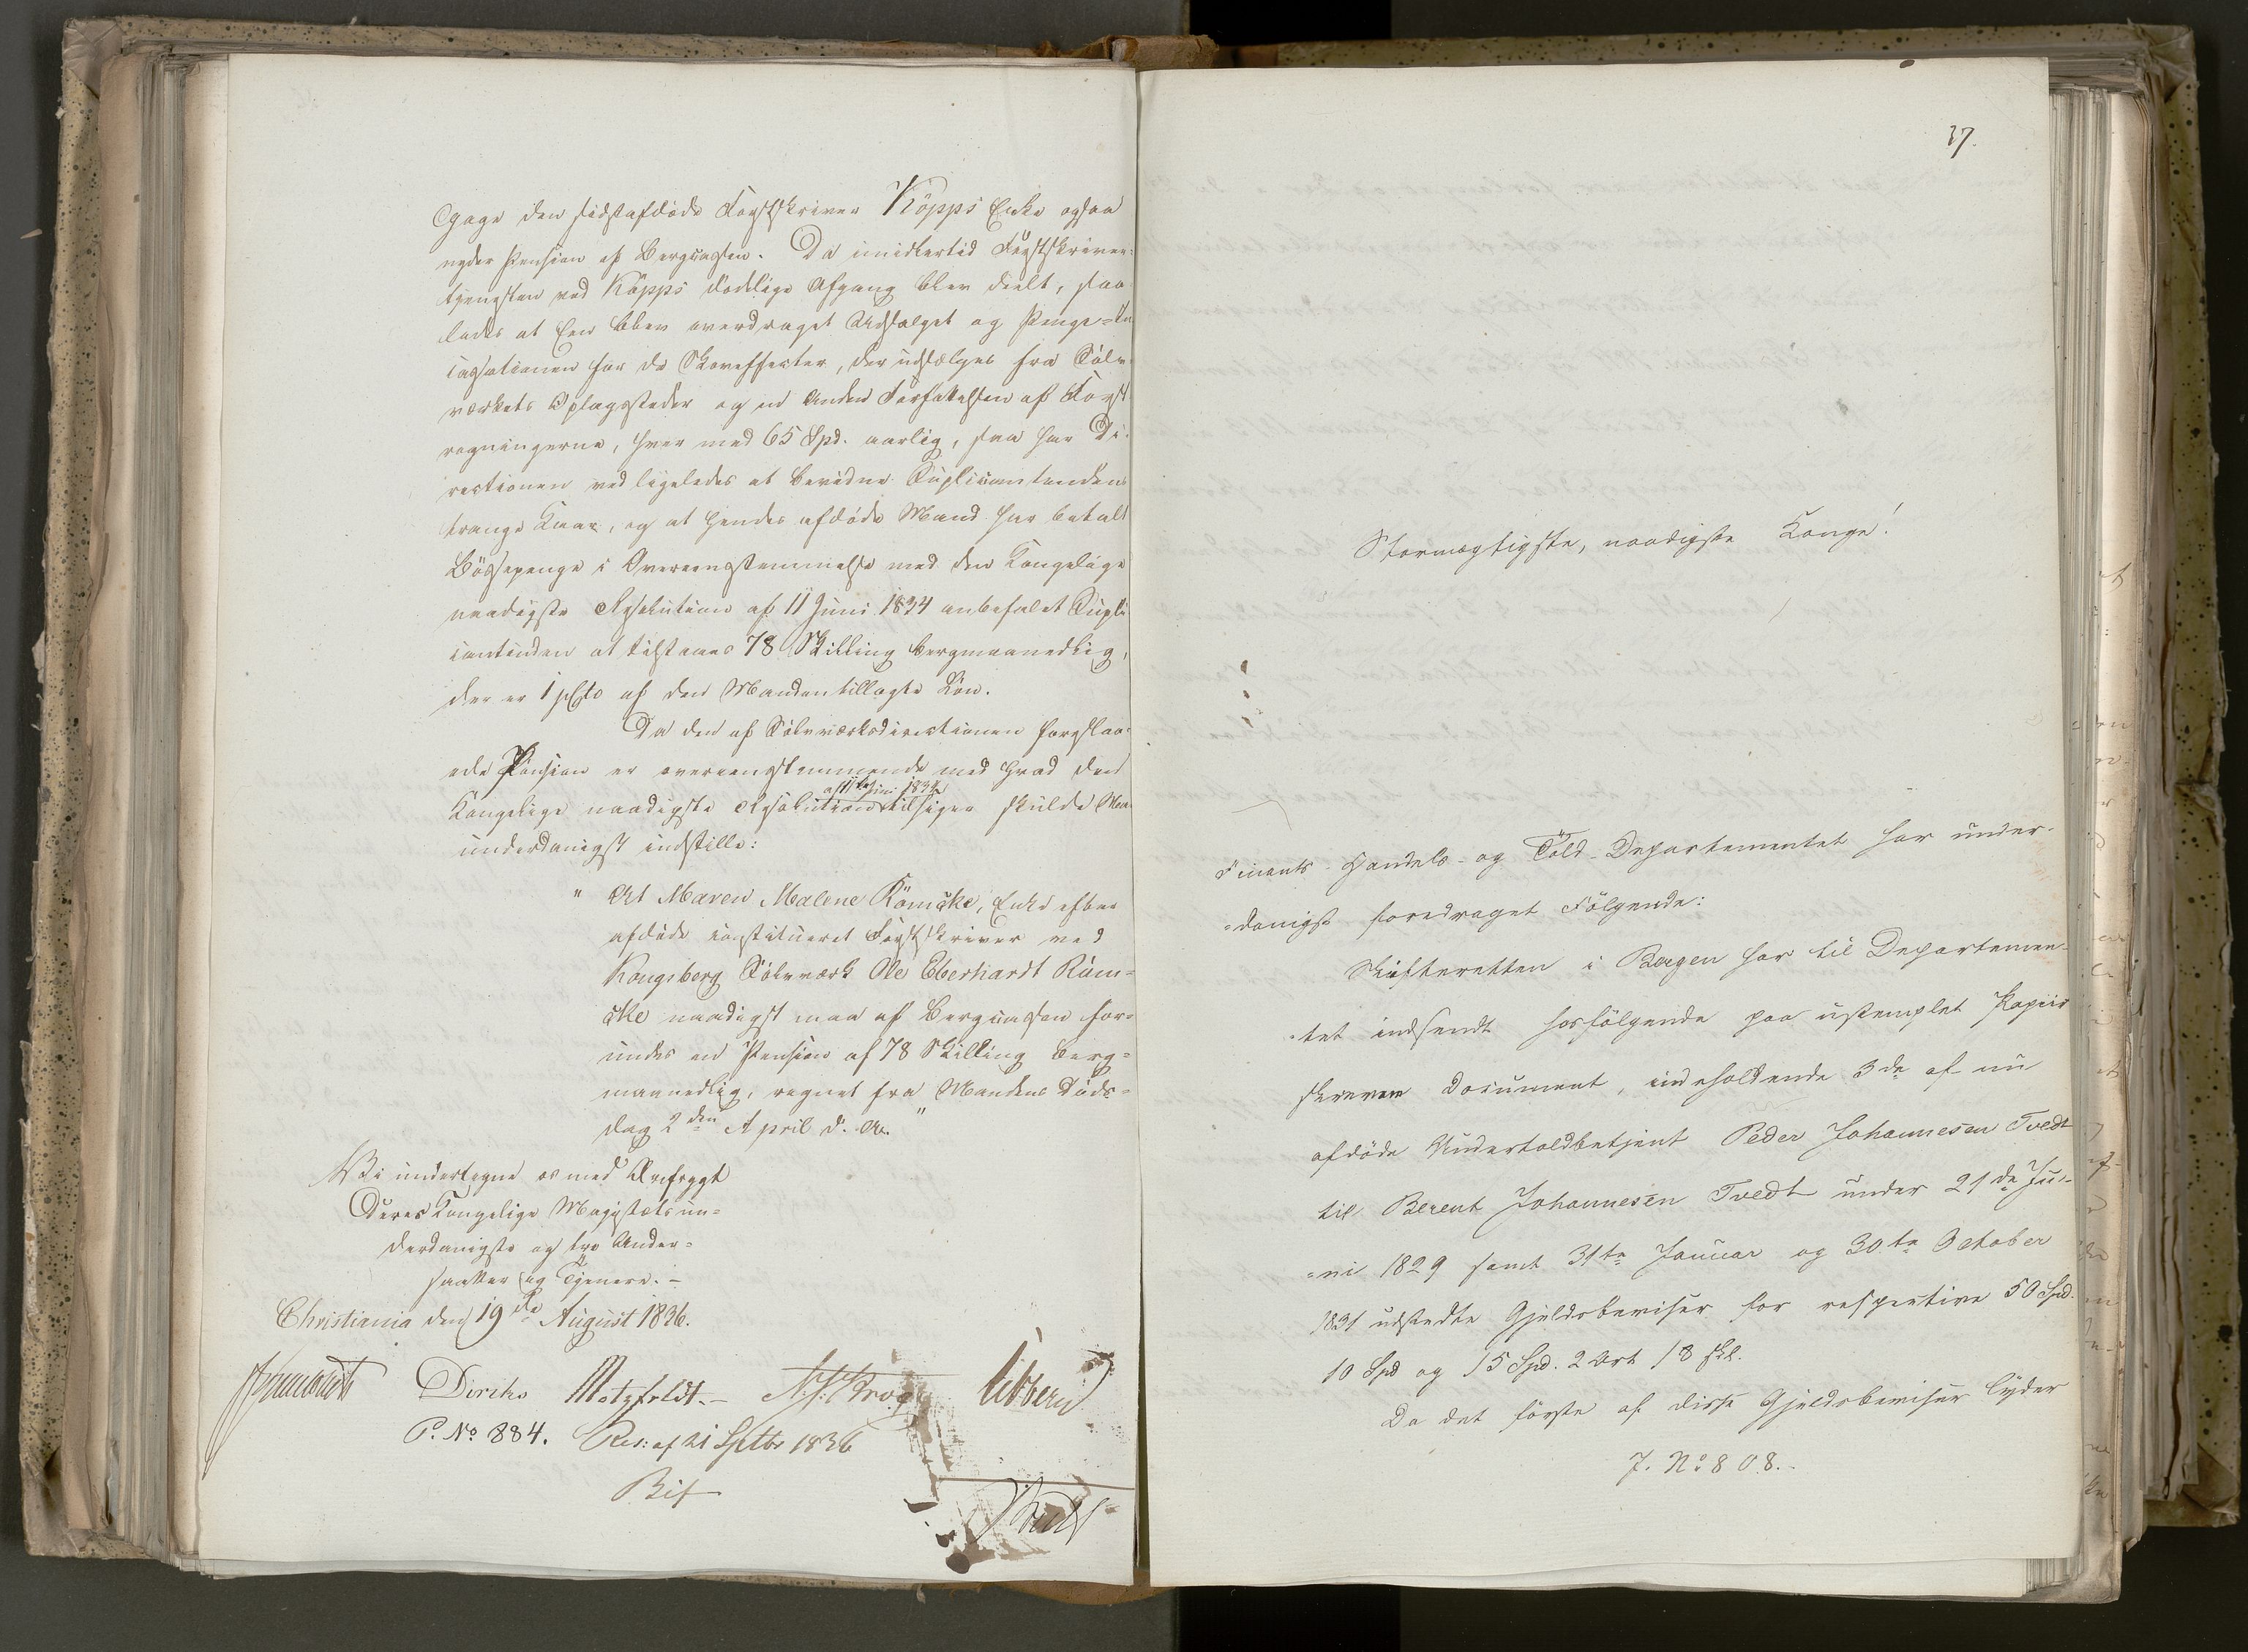 Gage den sidstafdöde Forstskriver Köpps Enke ogsaa
nyder Pension af Bergcassen. Da imidlertid Forstskriver-
tjenesten ved Köpps dödelige Afgang blev deelt, saa-
ledes at Een blev overdraget Udsalget og Penge-In-
cassationen for de Skoveffecter, der udsælges fra Sölv-
værkets Oplagssteder og en Anden Forfattelsen af Forst
regningerne, hver med 65 Spd. aarlig, saa har Di-
rectionen ved ligeledes at bevidne Suplicantindens
trange Kaar, og at hendes afdöde Mand har betalt
Bössepenge i Overeensstemmelse med den Kongelige
naadigste Resolution af 11 Juni 1834 anbefalet Supli-
cantinden at tilstaaes 78 Skilling bergmaanedlig,
der er 1 pCto af den Manden tillagte Lön.
Da den af Sölvværksdirectionen foreslaa-
ede Pension er overeensstemmende med hvad den
af 11te Juni 1834
Kongelige naadigste Resolution tilsiger skulde Man
underdanigst indstille:
" At Maren Malene Römcke, Enke efter
afdöde constitueret Forstskriver ved
Kongsberg Sölvværk Ole Eberhardt Röm-
cke naadigst maa af Bergcassen for-
undes en Pension af 78 Skilling berg-
maanedlig, regnet fra Mandens Döds-
dag 2den April d. A."
Vi undertegne os med Ærefrygt
Deres Kongelige Majestæts un-
derdanigste og tro Under-
saatter og Tjenere. -
Christiania den 19de August 1836.
Diriks Motzfeldt. - N. J. Krog Sibbern
P. No 884. Res: af 21 Septbr 1836
37.
Stormægtigste, naadigste Konge!
Finants- Handels- og Told-Departementet har under-
-danigst foredraget Fölgende:
Skifteretten i Bergen har til Departemen-
-tet indsendt hosfölgende paa ustemplet Papiir
skreven Document, indeholdende 3de af nu
afdöde Undertoldbetjent Peder Johannesen Tvedt
til Berent Johannesen Tvedt under 21de Ju-
-ni 1829 samt 31te Januar og 30te October
1831 udstedte Gjeldsbeviser for respective 50 Spd.
10 Spd og 15 Spd. 2 Ort 18 skl.
Da det förste af disse Gjeldsbeviser lyder
J. No 808. -